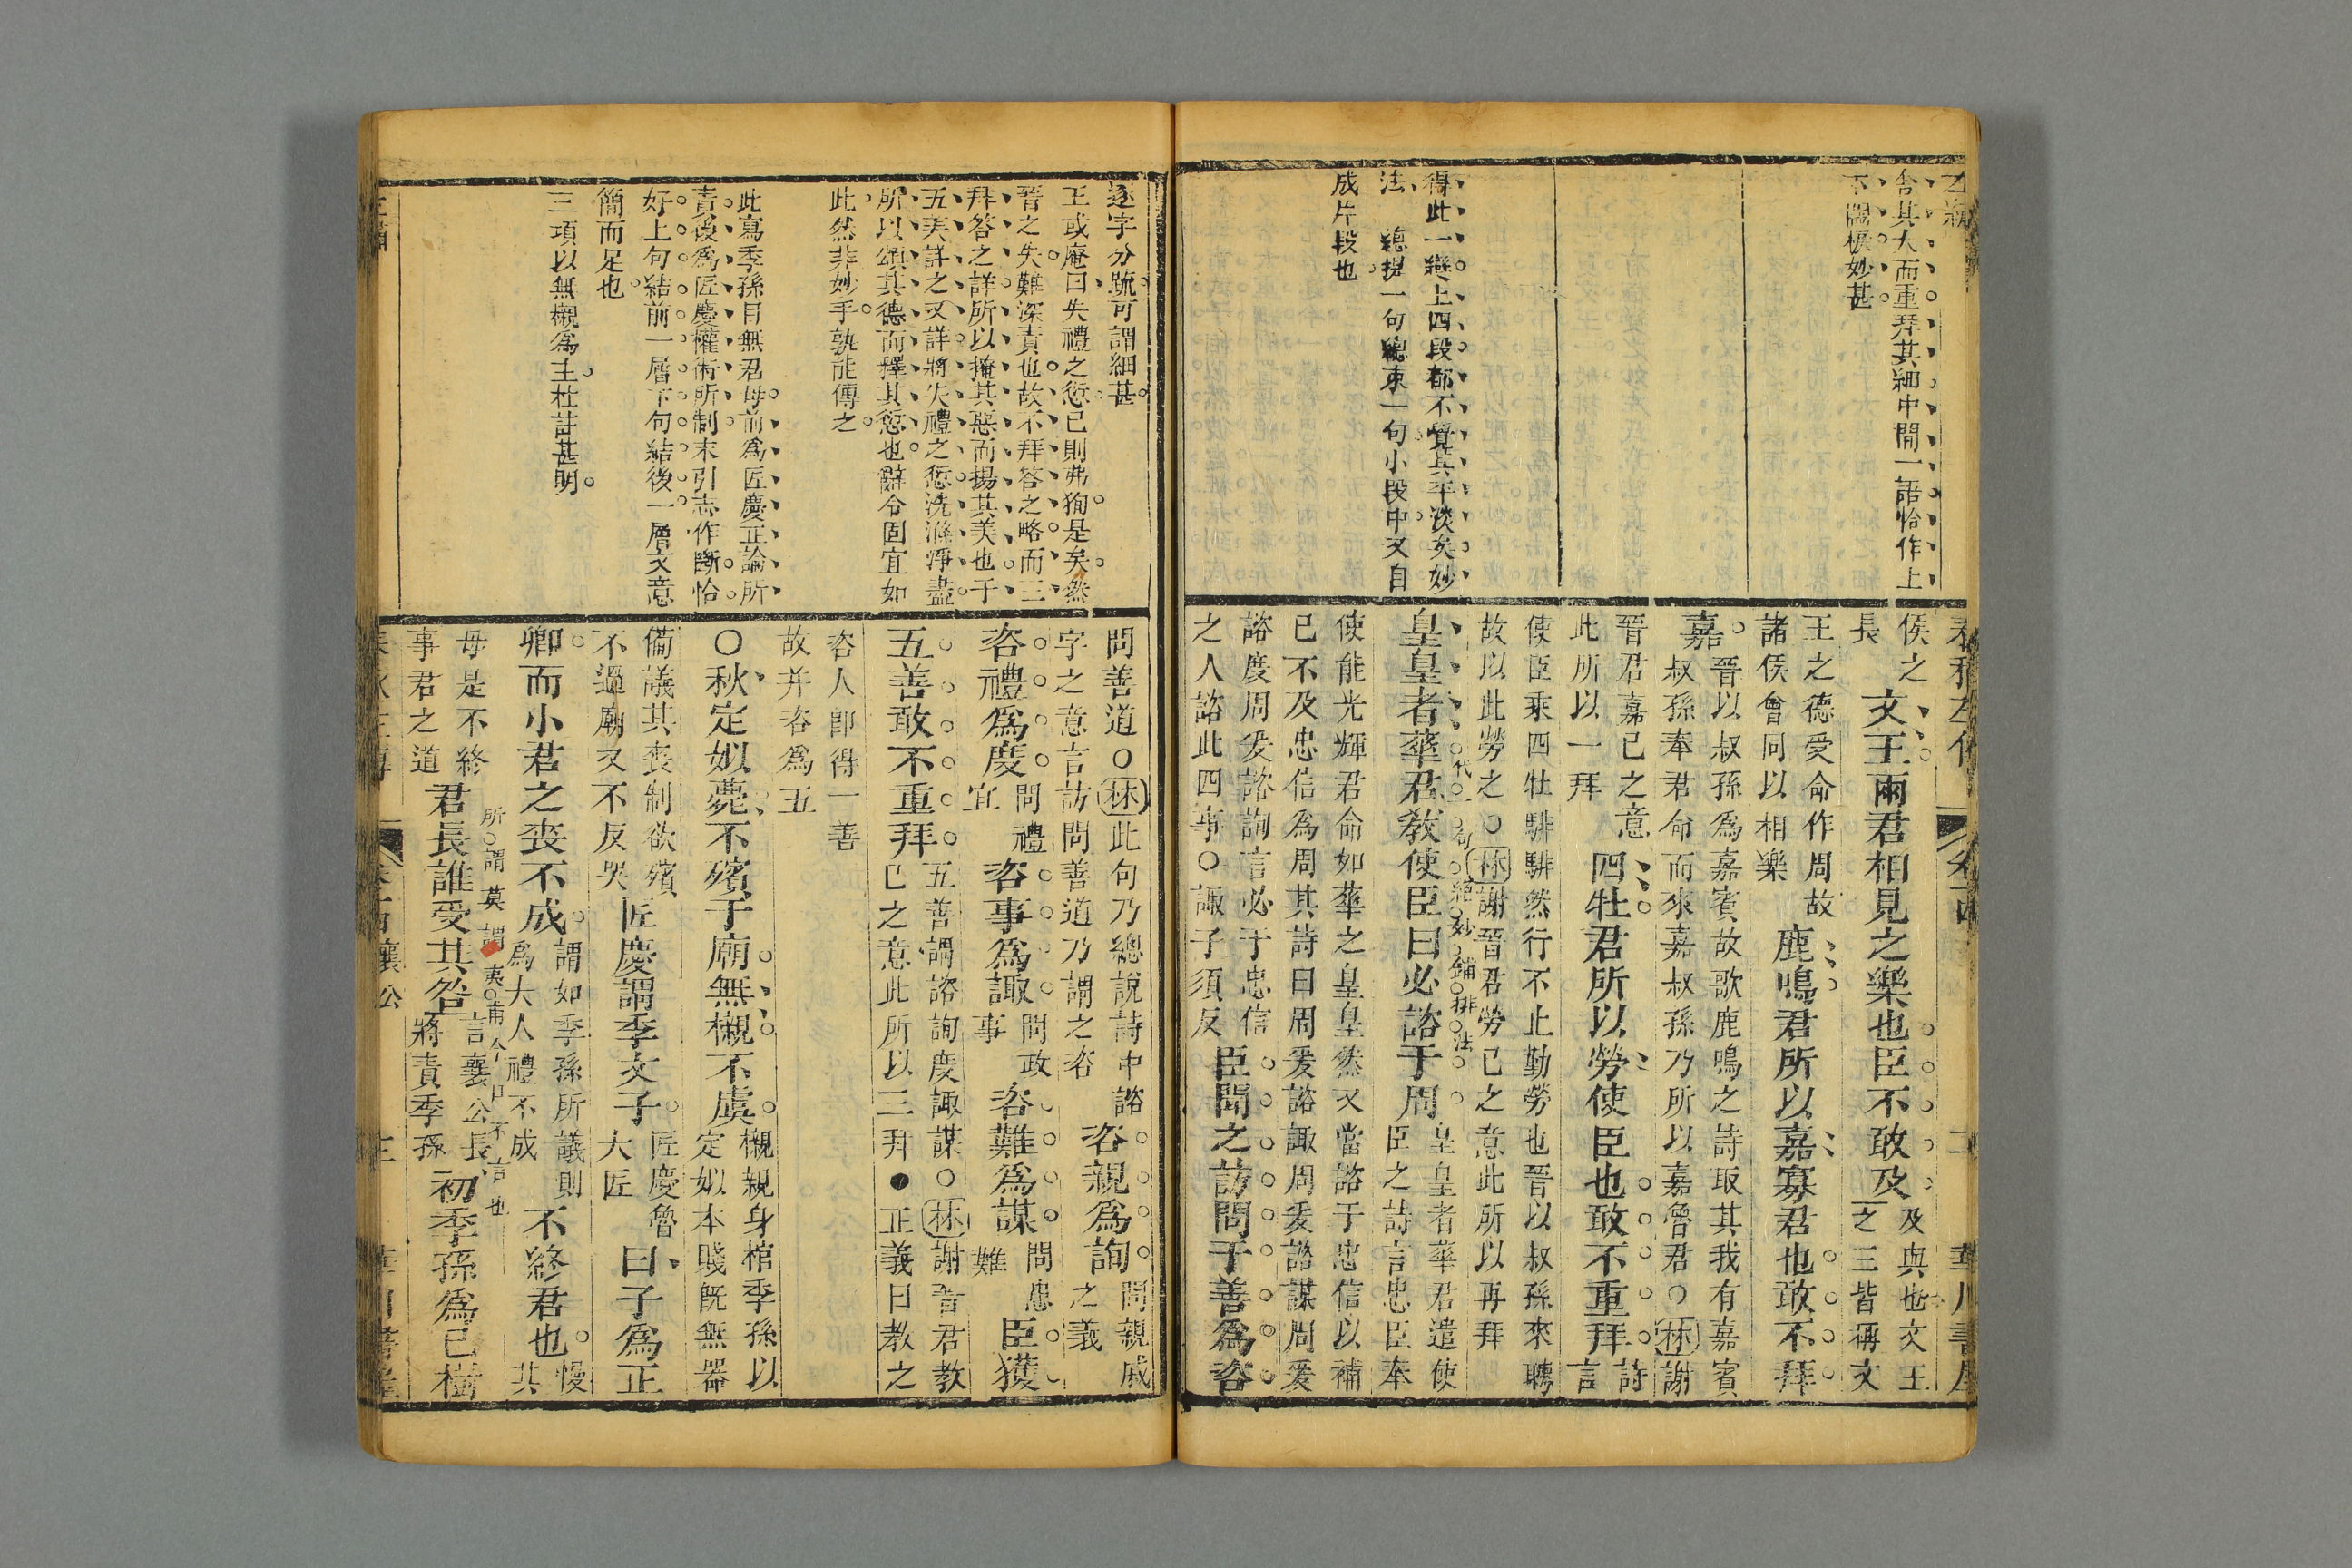 舍其大而重拜其細中間一語恰作上
下關棙妙甚
得此一變上四段都不覺其平淡矣妙
法　總提一句總束一句小段中又自
成片段也
侯之
長
文王兩君相見之樂也臣不敢及
及與也文王
之三皆稱文
王之德受命作周故
諸侯會同以相樂
鹿鳴君所以嘉寡君也敢不拜
嘉
晉以叔孫為嘉賓故歌鹿鳴之詩取其我有嘉賓
叔孫奉君命而來嘉叔孫乃所以嘉魯君○林謝
晉君嘉已之意
此所以一拜
四牡君所以勞使臣也敢不重拜
詩
言
使臣乘四牡騑騑然行不止勤勞也晉以叔孫來聘
故以此勞之○林謝晉君勞已之意此所以再拜
皇皇者華君教使臣曰必諮于周
代一句絕妙鋪排法
皇皇者華君遣使
臣之詩言忠臣奉
使能光輝君命如華之皇皇然又當諮于忠信以補
已不及忠信為周其詩曰周爰諮諏周爰諮謀周爰
諮度周爰諮詢言必于忠信
之人諮此四事○諏子須反
臣聞之訪問于善為咨
逐字分疏可謂細甚
王或庵曰失禮之愆已則弗狥是矣然
晉之失難深責也故不拜答之略而三
拜答之詳所以掩其惡而揚其美也于
五美詳之又詳將失禮之愆洗滌淨盡
所以頌其德而釋其愆也辭令固宜如
此然非妙手孰能傳之
此寫季孫目無君母前為匠慶正論所
責後為匠慶權術所制末引志作斷恰
好上句結前一層下句結後一層文意
簡而足也
三項以無櫬為主杜註甚明
問善道○林此句乃總說詩中諮
字之意言訪問善道乃謂之咨
咨親為詢
問親戚
之義
咨禮為度
問禮
宜
咨事為諏
問政
事
咨難為謀
問患
難
臣獲
五善敢不重拜
五善謂諮詢度諏謀○林謝晉君教
已之意此所以三拜●正義曰教之
咨人卽得一善
故并咨為五
○秋定姒薨不殯于廟無櫬不虞
櫬親身棺季孫以
定姒本賤旣無器
備議其喪制欲殯
不過廟又不反哭
匠慶謂季文子
匠慶魯
大匠
曰子為正
卿而小君之喪不成
謂如季孫所議則
為夫人禮不成
不終君也
慢
其
母是不終
事君之道
君長誰受其咎
所謂莫謂夷甫今日不言也
言襄公長
將責季孫
初季孫為已樹